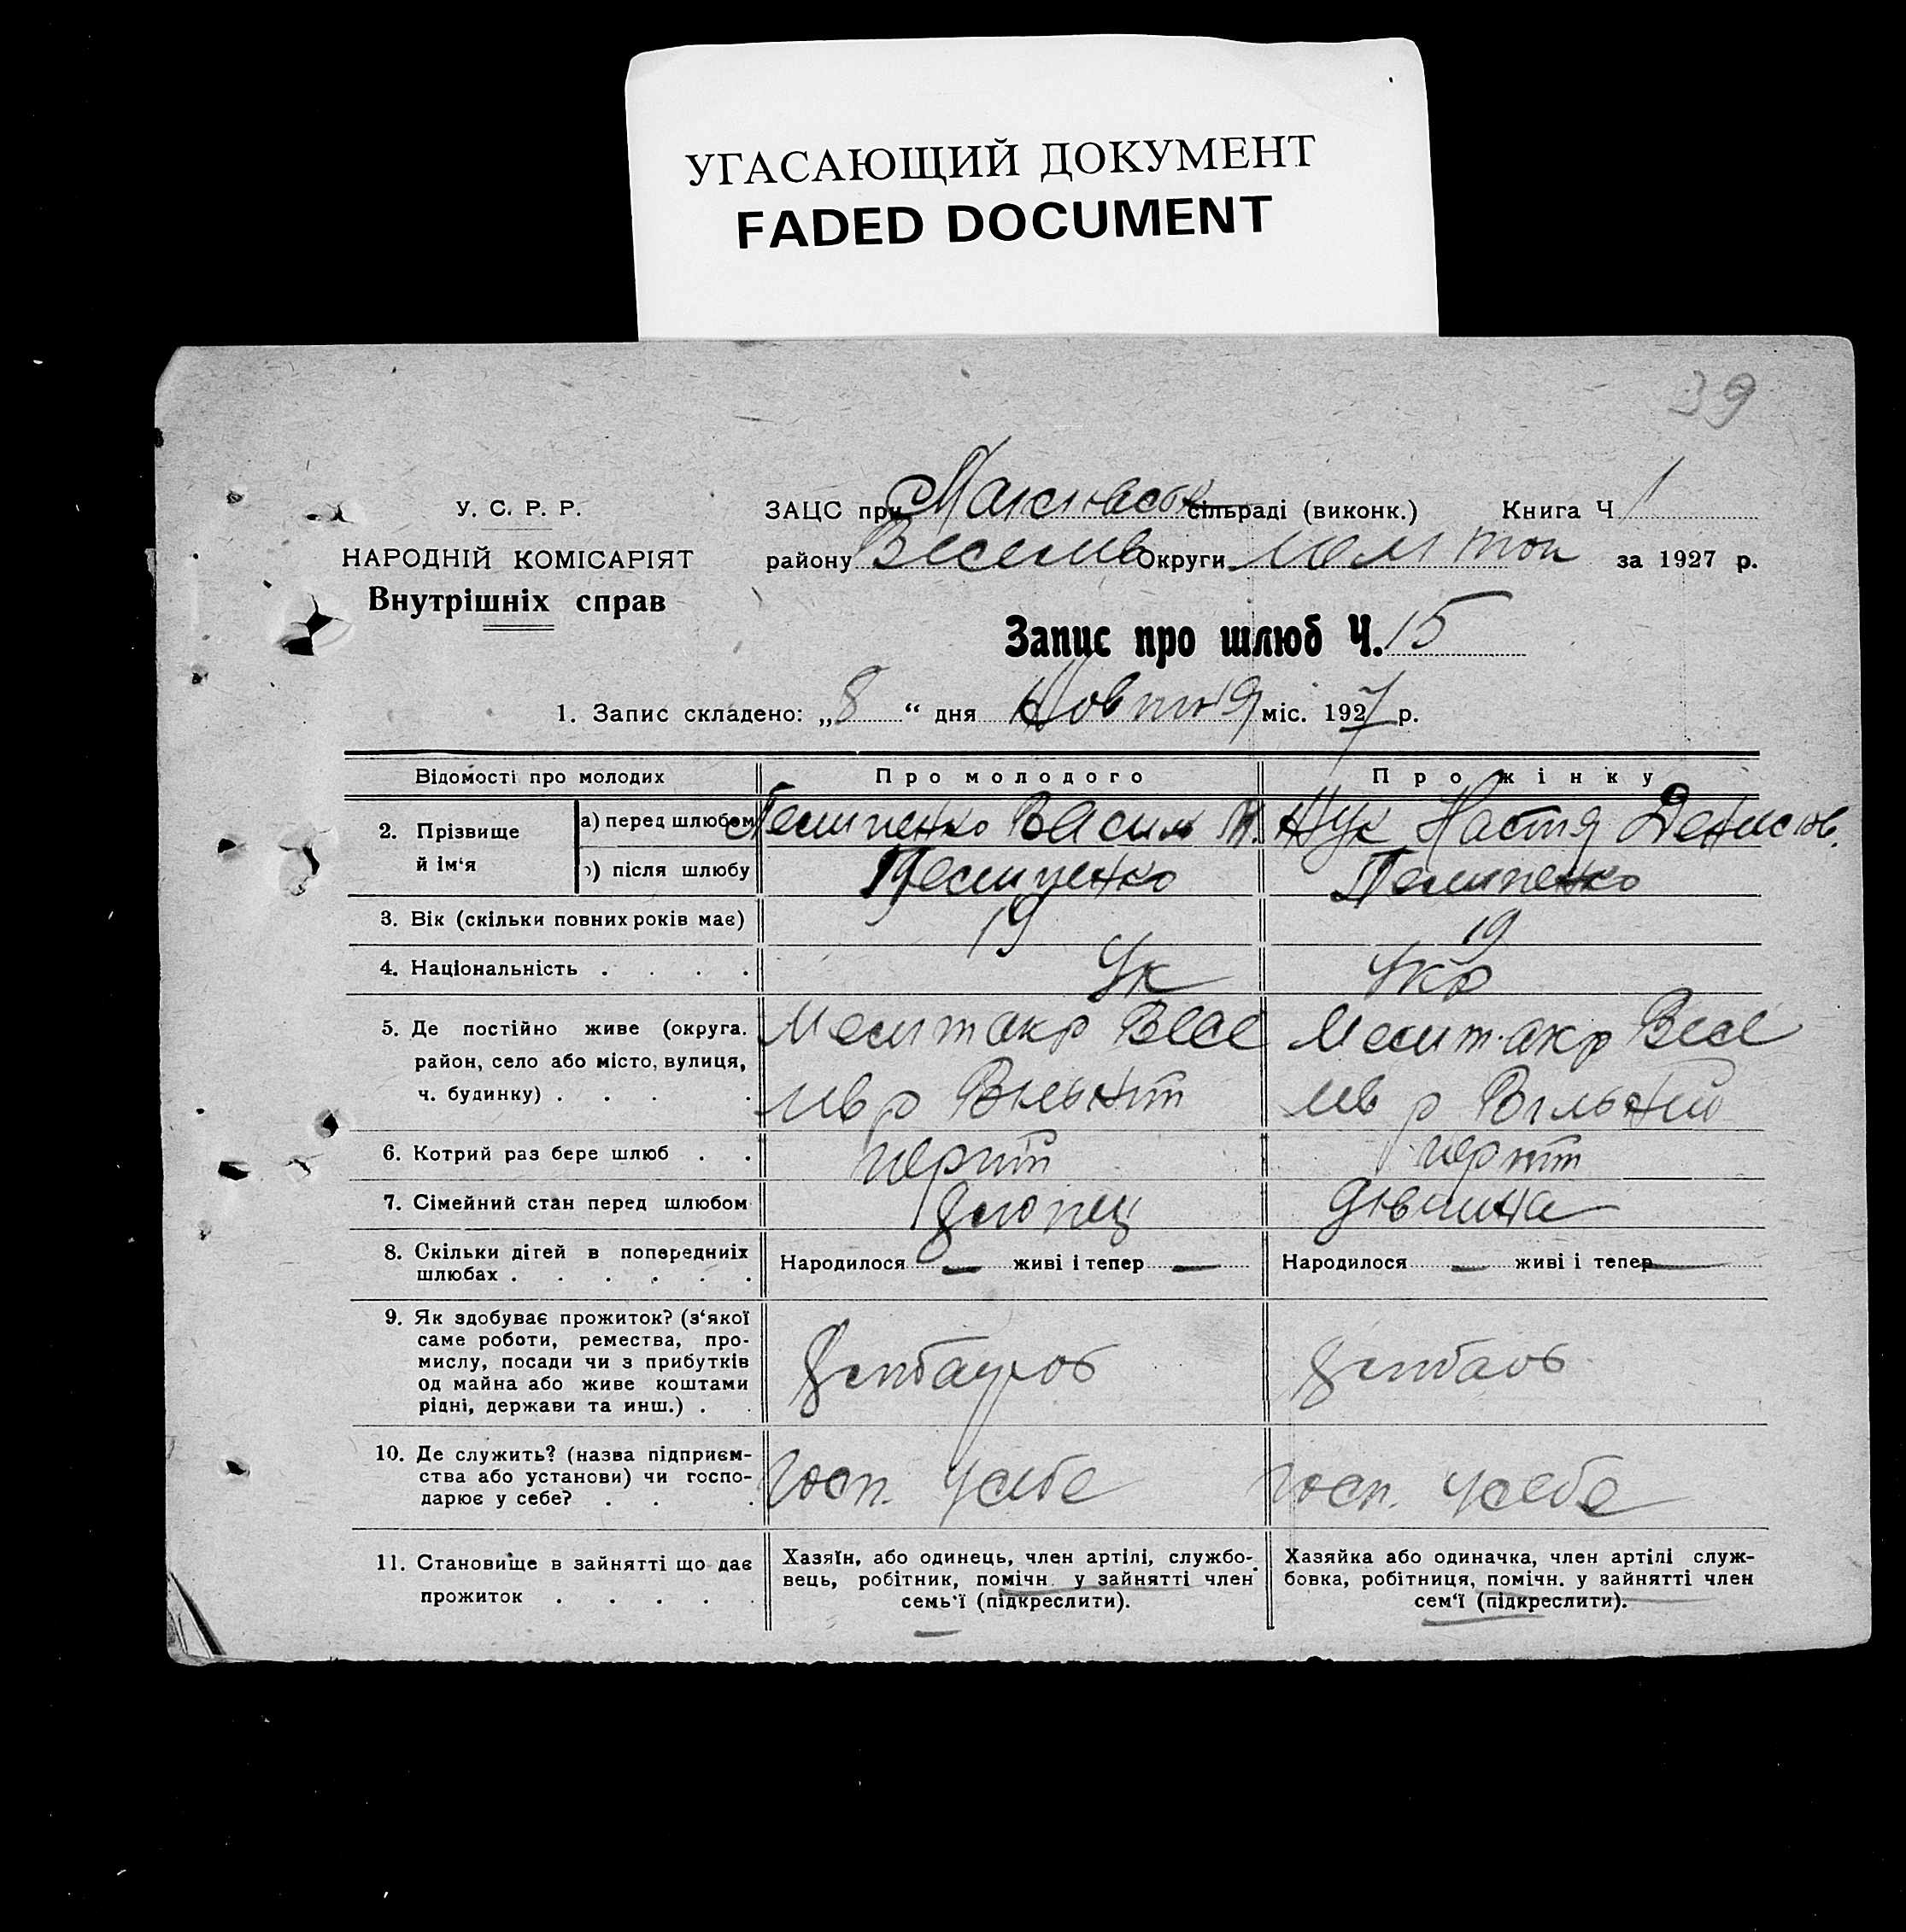 УГАСАЮЩИЙ ДОКУМЕНТ
FADED DOCUMENT
39
У. С. Р. Р.
НАРОДНІЙ КОМІСАРІЯТ
Внутрішніх справ
ЗАЦС при сільраді (виконк.) Книга Ч 1
району Веселів Округи за 1927 р.
Запис про шлюб Ч. 15
1. Запис складено: „8“ дня Жовтня міс. 1927 р.
Відомості про молодих Про молодого Про жінку
2. Прізвище й ім‘я
а) перед шлюбом Пелипенко Василь М. Жук Настя Денисов.
б) після шлюбу Пелипенко Пелипенко
3. Вік (скільки повних років має) 19 19
4. Національність . . . . Ук Укр
5. Де постійно живе (округа. Меліт окр Весе Меліт. окр Весе
район, село або місто, вулиця,
ч. будинку) . . . . лів р лів р Вільний
6. Котрий раз бере шлюб . .
7. Сімейний стан перед шлюбом хлопец дівчина
8. Скільки дітей в попередниіх Народилося — живі і тепер — Народилося — живі і тепер —
шлюбах . . . . . .
9. Як здобуває прожиток? (з‘якої
саме роботи, ремества, про-
мислу, посади чи з прибутків
од майна або живе коштами
рідні, держави та инш.) . .
10. Де служить? (назва підприєм-
ства або установи) чи госпо- Госп. усебе Госп. усебе
дарює у себе? . . .
11. Становище в зайнятті що дає
прожиток . . . . .
Хазяїн, або одинець, член артілі, службо-
вець, робітник, помічн. у зайнятті член
семь‘ї (підкреслити).
Хазяйка або одиначка, член артілі служ-
бовка, робітниця, помічн. у зайнятті член
сем‘ї (підкреслити).